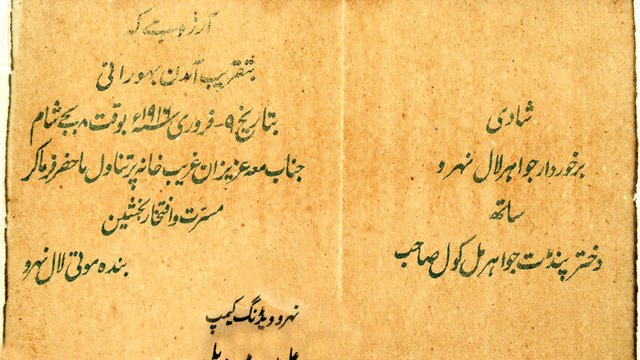 شادی
برخوردار جواہر لال نہرو
ساتھ
دختر پنڈت جواہر مل کول صاحب
آرزو ہے کہ
بتقریب آمدن بہورانی
بتاریخ ۹-فروری ۱۹۱۶ء بوقت ۸ بجے شام
جناب معہ عزیزان غریب خانہ پر تناول ماحضر فرما کر
مسرّت و افتخار بخشین
بندہ موتی لال نہرو
نہرو ویڈنگ کیمپ